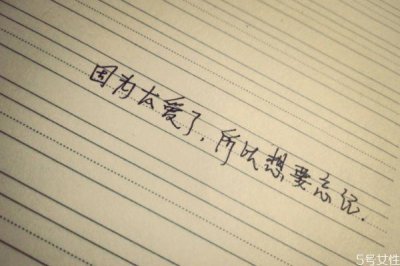 因为太爱了，所以想要忘记.
5号女性